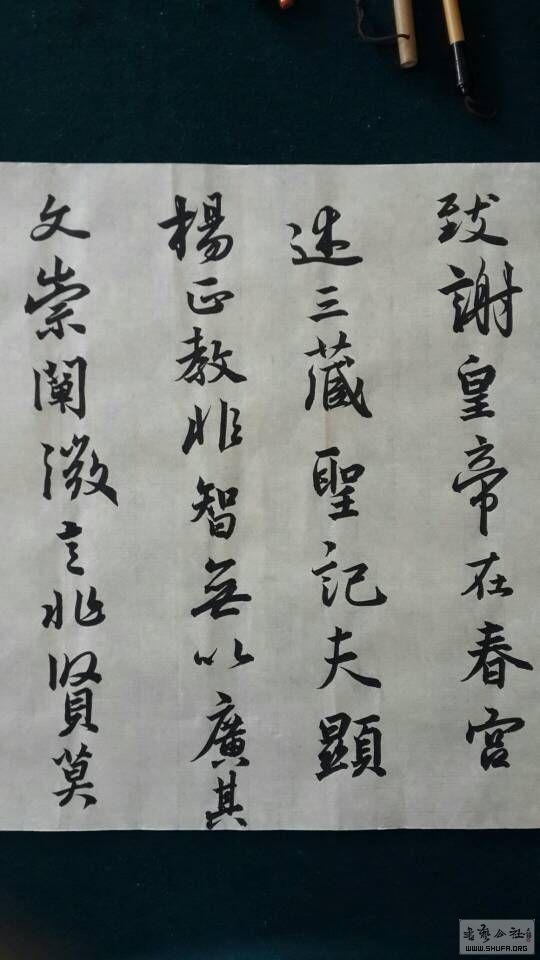 致謝皇帝在春宮
述三藏聖記夫顯
楊正教非智無以廣其
文崇闡微言非賢莫
WWW.SHUFA.ORG